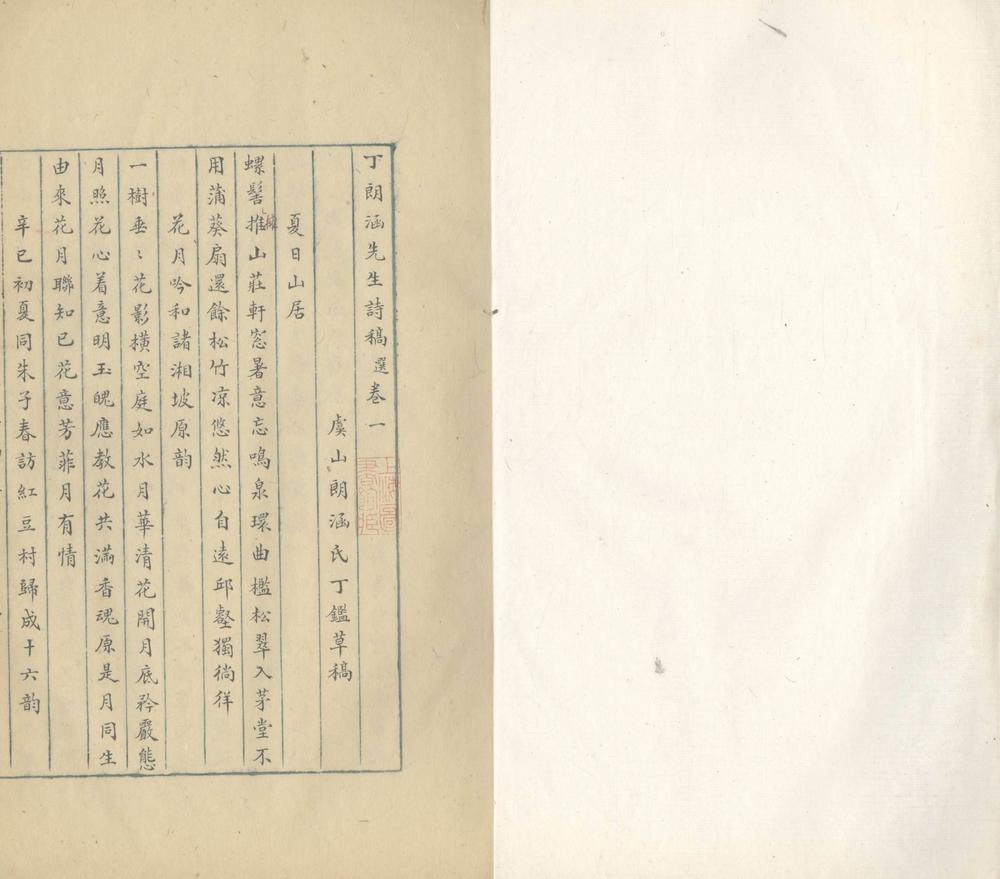 丁朗涵先生詩稿選卷一
虞山朗涵氏丁鑑草稿
夏日山居
螺髻推山莊軒窓暑意忘鳴泉環曲檻松翠入茅堂不
用蒲葵扇還餘松竹凉悠然心自遠邱壑獨徜徉
花月吟和諸湘坡原韵
一樹垂〻花影橫空庭如水月華清花開月底矜嚴態
月照花心着意明玉魄應教花共滿香魂原是月同生
由來花月聯知已花意芳菲月有情
辛巳初夏同朱子春訪紅豆村歸成十六韵